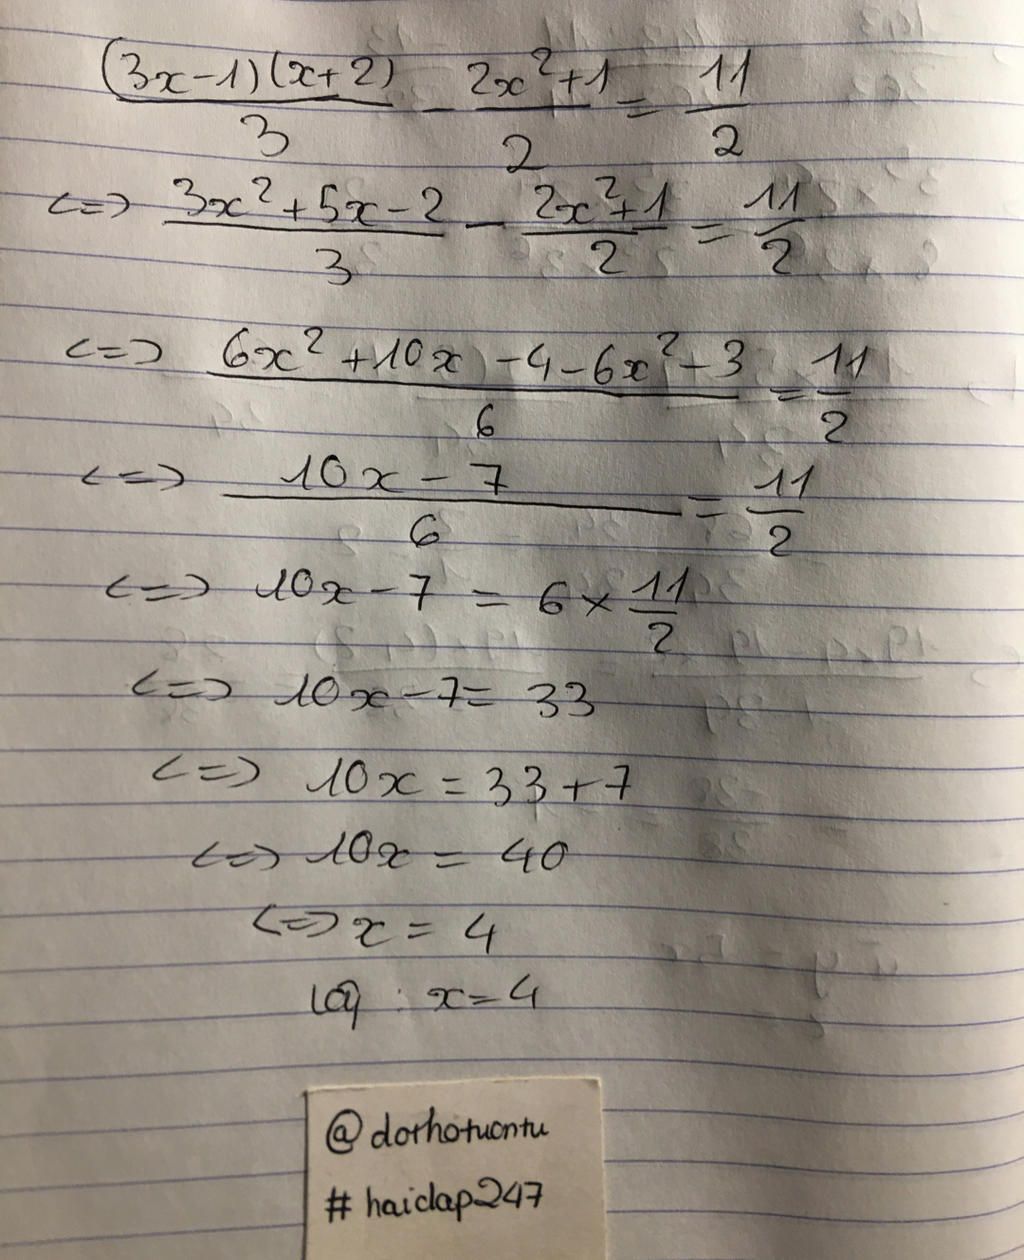 (3x-1)(x+2)/3 - 2x²+1/2 = 11/2
<=> 3x²+5x-2/3 - 2x²+1/2 = 11/2
<=> 6x²+10x-4-6x²-3/6 = 11/2
<=> 10x-7/6 = 11/2
<=> 10x-7 = 6 × 11/2
<=> 10x-7 = 33
<=> 10x = 33+7
<=> 10x = 40
<=> x = 4
: x = 4
@dorhotuontu
# haidap247